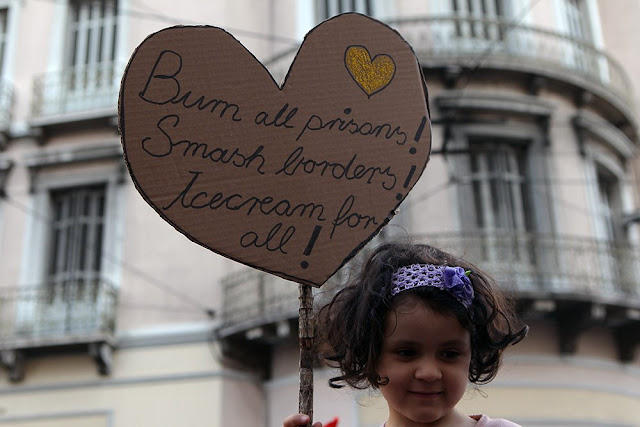 Burn all prisons!
Smash borders!
Icecream for
all!